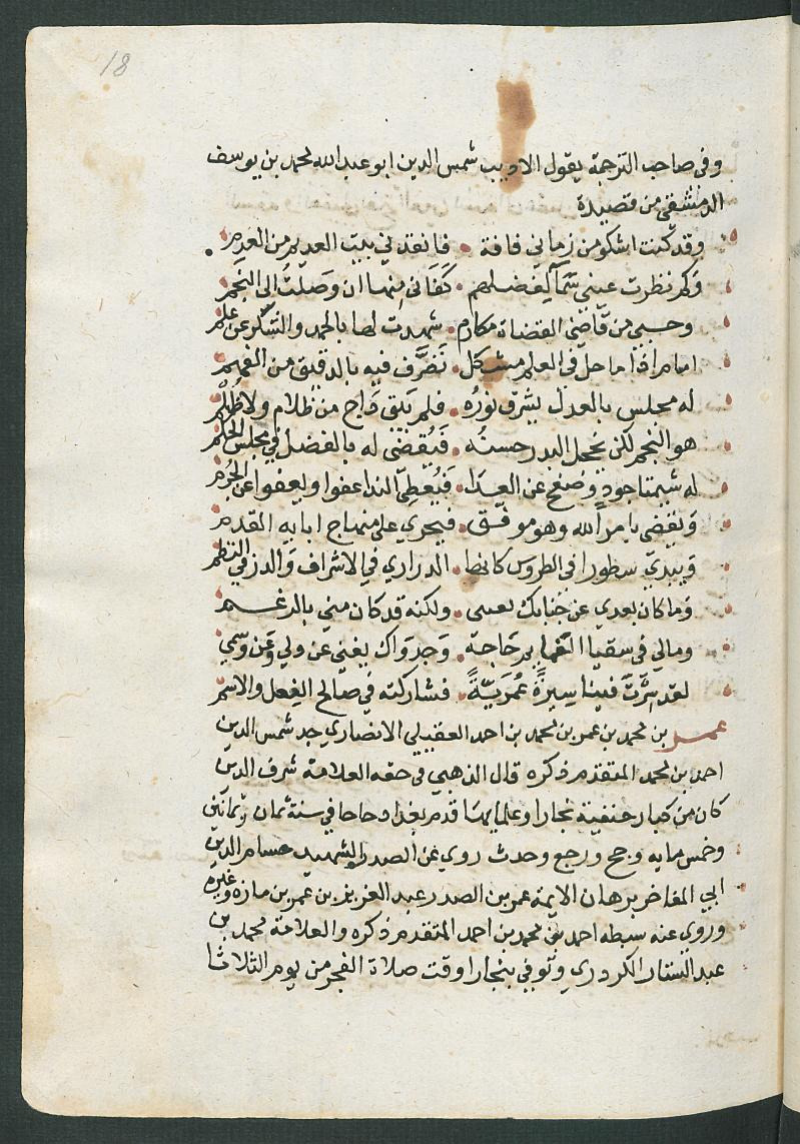 18
وفي صاحب الترجمة يقول الاديب شمس الدين ابو عبد الله محمد بن يوسف
الدمشقي من قصيدة
وقد كنت اشكو من زماني فاقة فانقذني بيت العديم من العدم
وكم نظرت عيني سمآ لفضلهم كفاني منها ان وصلت الى النجم
وحسبي من قاضي القضاة مكارم شهدت لها بالحمد والشكر عن علم
امام اذا ما حل في العلم مشكل تصرف فيه بالدقيق من الفهم
له مجلس بالعدل يشرق نوره فلم يبق داج من ظلام ولا ظلم
هو النجم لكن يخجل البدر حسنه فيقضى له بالفضل في مجلس الحكم
له شيمتا جود وصفح عن العدا فيعطي الندا عفوا ويعفوا عن الجرم
ويقضي بامر الله وهو موفق فيجري على منهاج ابايه القدم
ويبدي سطورا في الطروس كانها الدراري في الاشراف والدر في النظم
وما كان بعدي عن جنابك عن ولكنه قد كان مني بالرغم
ومالي في سقيا الغمايم حاجة وجدواك يغني عن ولي وعن وسمي
لقد سرت فينا سيرة عمرية فشاركته في صالح الفعل والاسم
عمر بن محمد بن عمر بن محمد بن احمد العقيلي الانصاري جد شمس الدين
احمد بن محمد المتقدم ذكره قال الذهبي في حقه العلامة شرف الدين
كان من كبار حنفية بخارا وعلمايها قدم بغداد حاجا في سنة ثمان وثمانين
وخمس مايه وحج ورجع وحدث روي عن الصدر الشهيد حسام الدين
ابي المفاخر برهان الايمة عمر بن الصدر عبد العزيز بن عمر بن مازه وغيره
وروي عنه سبطه احمد بن محمد بن احمد المتقدم ذكره والعلامة محمد بن
عبد الستار الكردري وتوفي ببخارا وقت صلاة الفجر من يوم الثلاثا